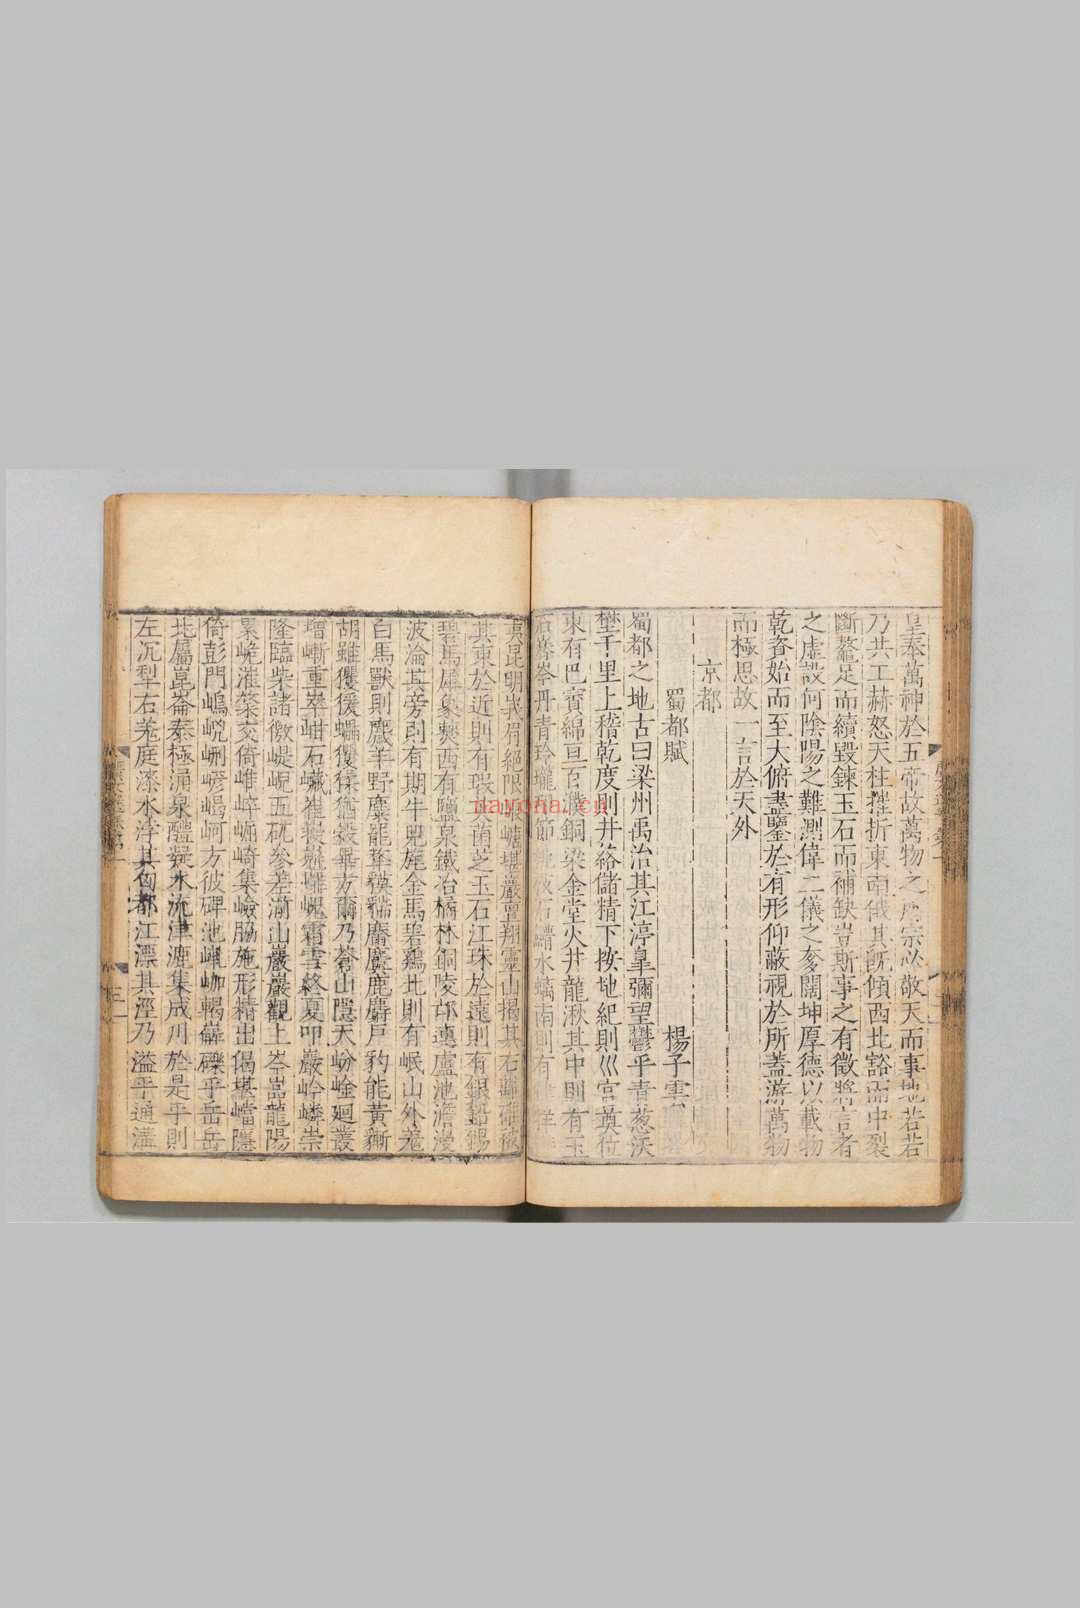 皇奉萬神於五帝故萬物之所宗必敬天而事地若
乃共工赫怒天柱摧折東南俄其旣傾西北豁而中裂
斷鼇足而續毀鍊玉石而補缺豈斯事之有徵將言者
之虛設何陰陽之難測偉二儀之奓闊坤厚德以載物
乾資始而至大俯盡鑒於有形仰蔽視於所蓋游萬物
而極思故一言於天外
京都
蜀都賦 楊子雲
蜀都之地古曰梁州禹治其江渟皐彌望鬱乎青葱沃
壄千里上稽乾度則井絡儲精下按地紀則巛宮奠位
東有巴賨綿亘百濮銅梁金堂火井龍湫其中則有玉
石嶜岑丹青玲瓏邛節桃枝石䲡水螭南則有
夷昆明峩眉絕限 嵣堪巖亶翔靈山揭其右離碓被
其東於近則有瑕英菌芝玉石江珠於遠則有銀鉛錫
碧馬犀象僰西有鹽泉鐵冶橘林銅陵邙連盧池澹漫
波淪其旁則有期牛兕旄金馬碧鷄北則有岷山外羌
白馬獸則麙羊野麋罷犛貘貒麢麌鹿麝戶豹能黃
胡雖玃猨蠝玃猱猶縠畢方爾乃蒼山隱天岎崟廻叢
增嶄重崒岩石巘崔 霜雪終夏叩巖岭嶙崇
隆臨柴諸徼崼崕五矹參差湔山巖巖觀上岑嵓龍陽
累峗漼粲交倚嶊崪崛崎集嶮脇施形精出偈堪嵣隱
倚彭門嶋岲 嵃嵑岢方彼碑池 輵 礫乎岳岳
北屬崑崙泰極涌泉醴凝水流津漉集成川於是乎則
左沉犁右羌庭漆水浮其匈都江漂其涇乃溢乎通溝
nayona.cn